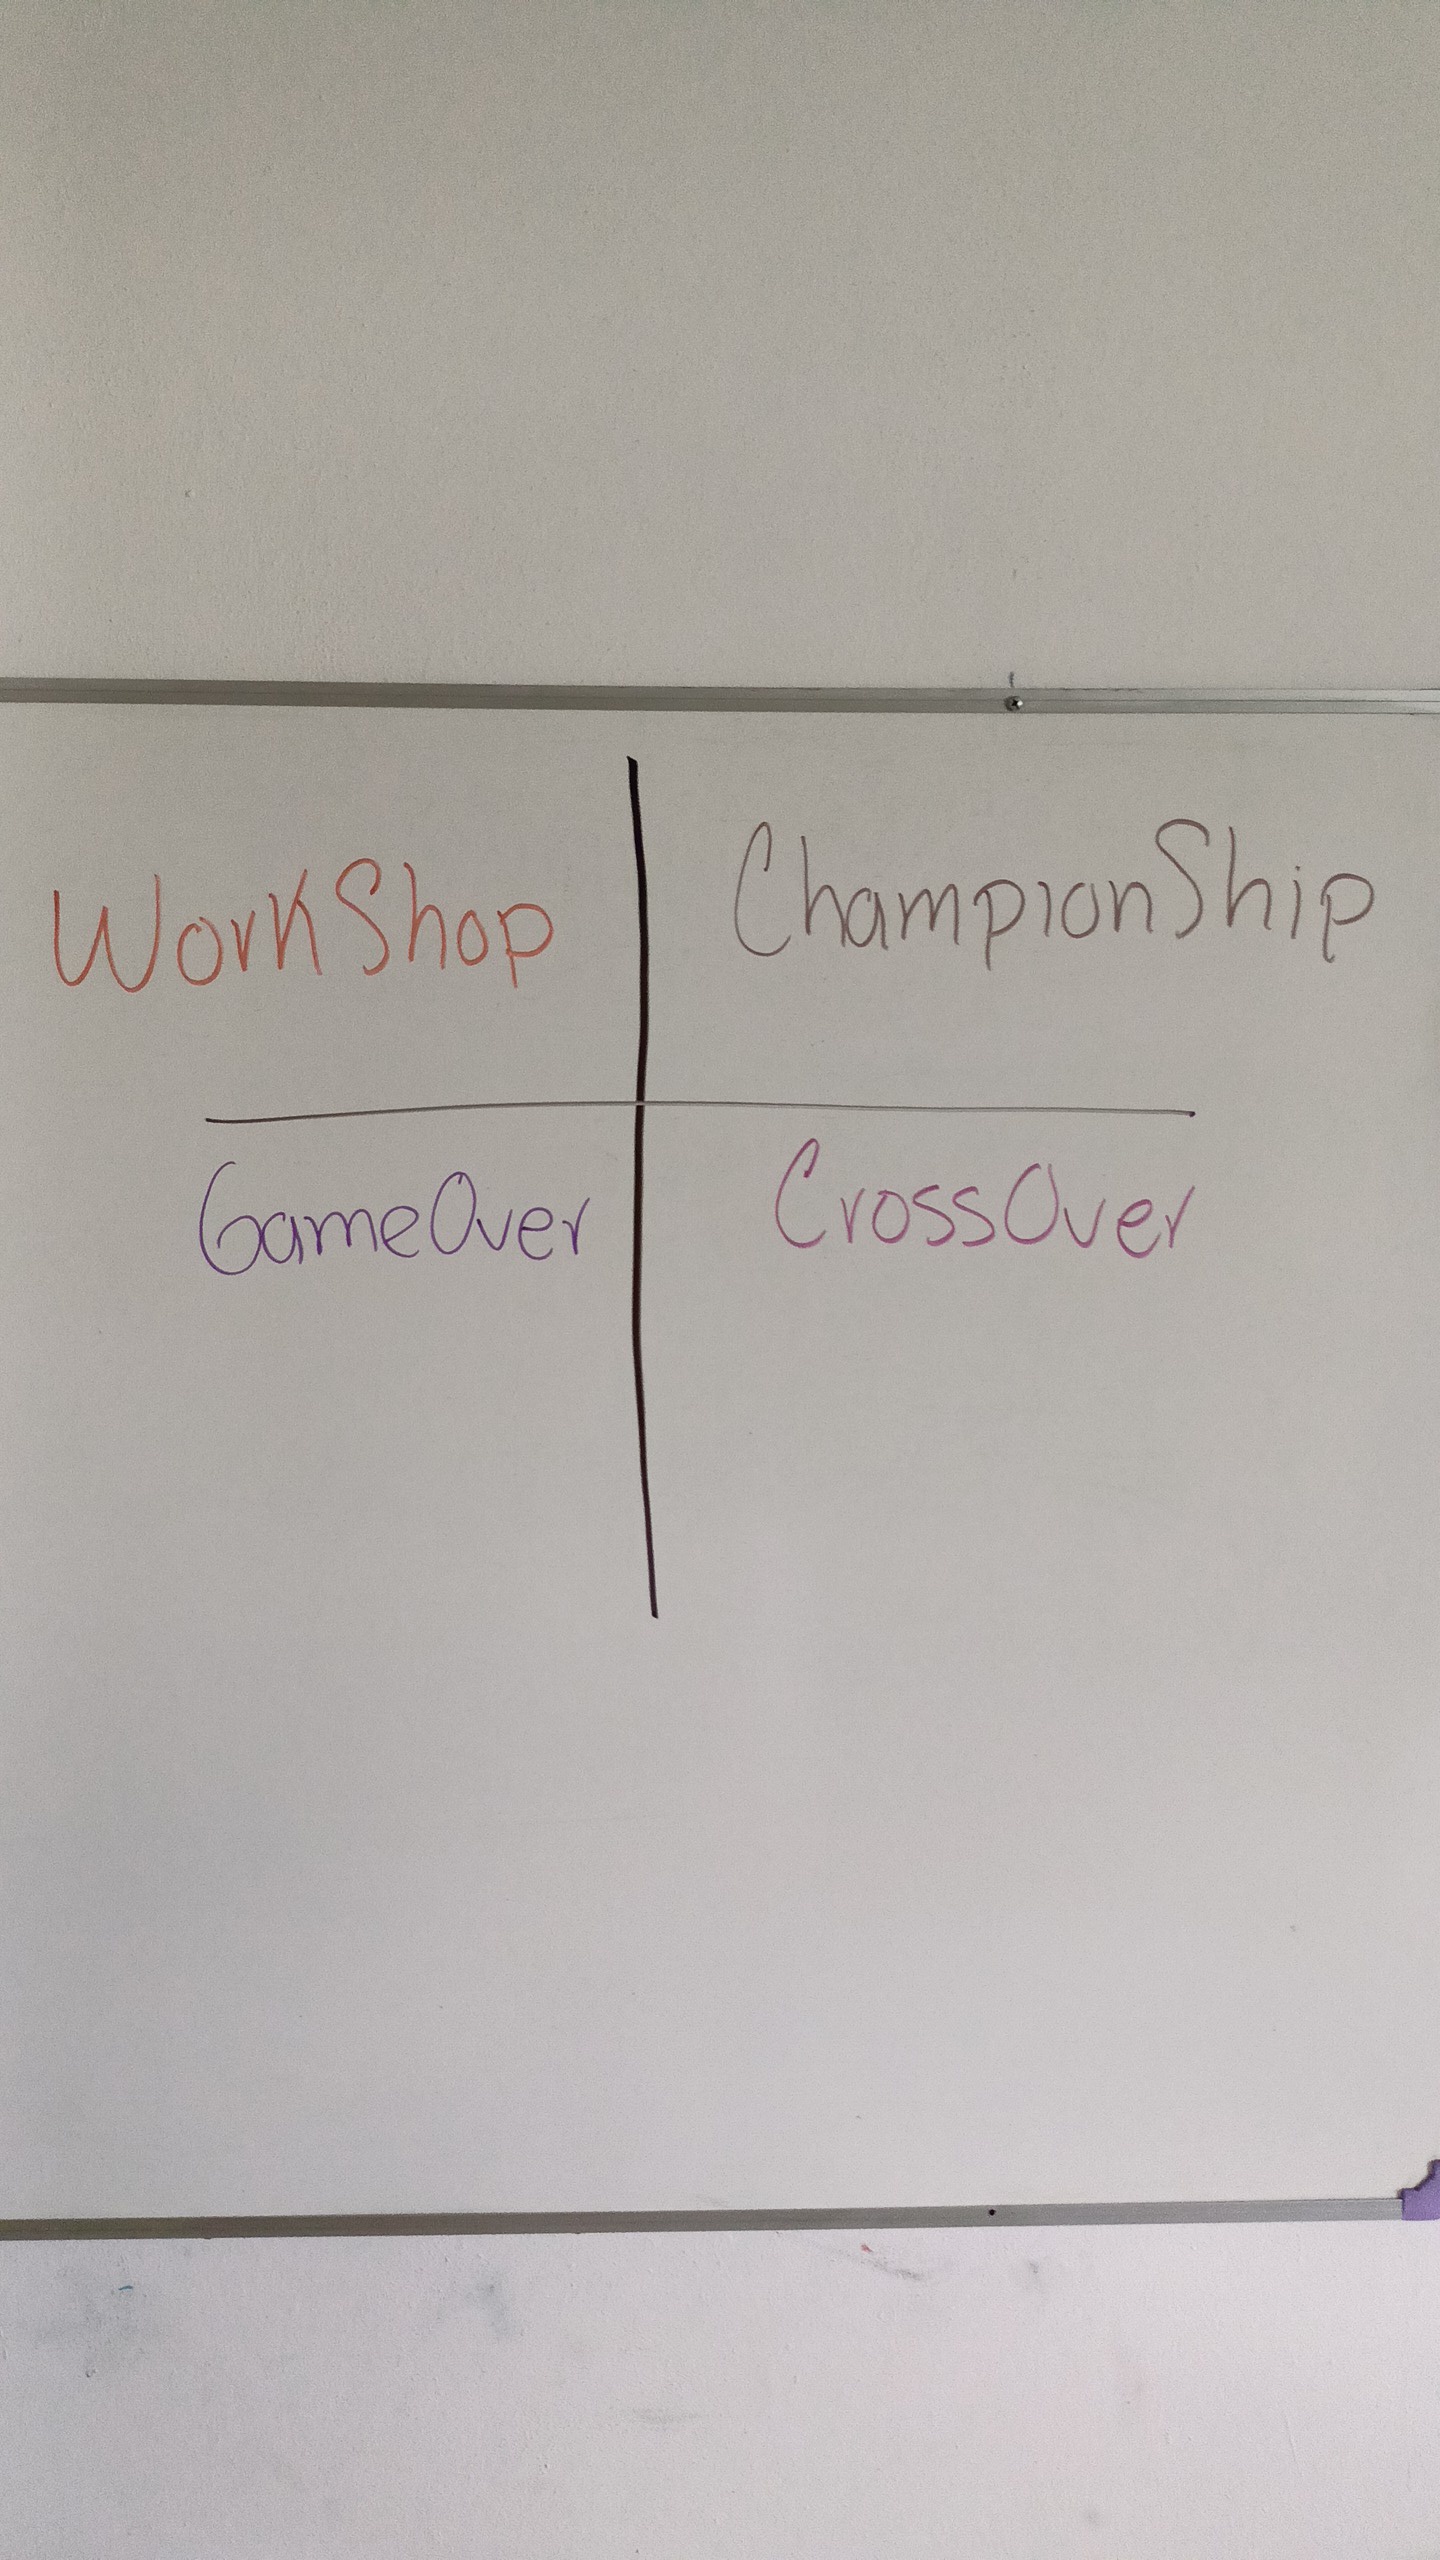 WorkShop
ChampionShip
GameOver
CrossOver